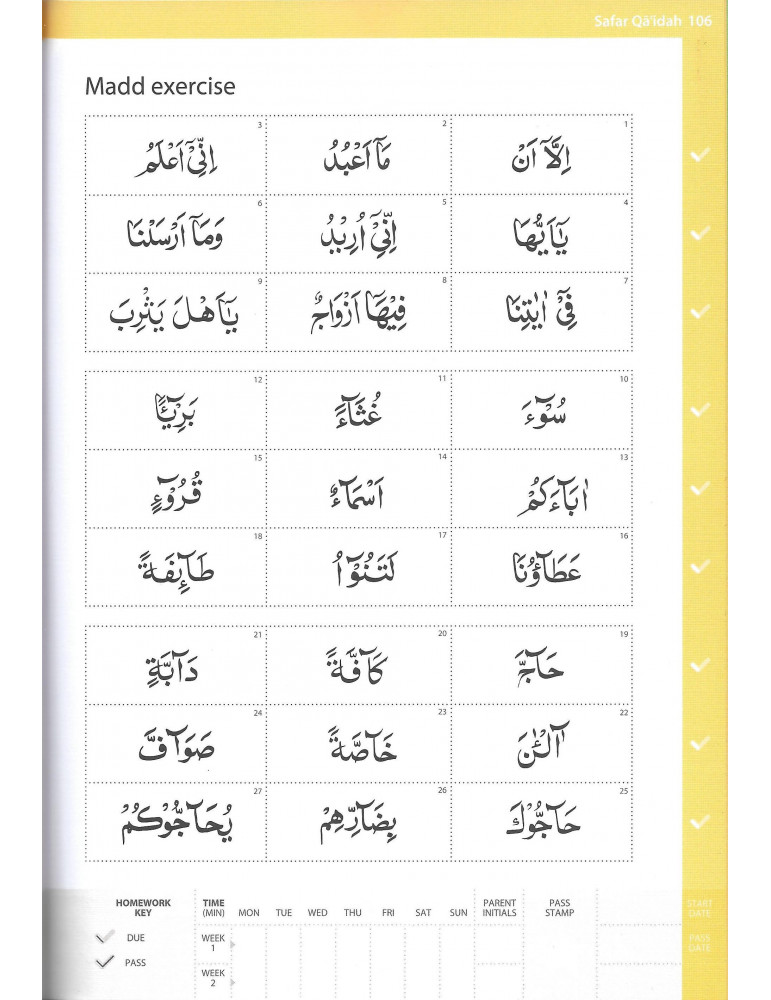 Safar Qā'idah 106
Madd exercise
1 اِلَّاۤ اَنْ 2 مَاۤ اَعْبُدُ 3 اِنِّيْۤ اَعْلَمُ
4 يٰۤاَيُّهَا 5 اِنِّيْۤ اُرِيْدُ 6 وَمَاۤ اَرْسَلْنَا
7 فِيْۤ اٰيٰتِنَا 8 فِيْهَاۤ اَزْوَاجٌ 9 يٰۤاَهْلَ يَثْرِبَ
10 سُوْٓءَ 11 غُثَآءً 12 بَرِيْٓـًٔا
13 اٰبَآءَكُمْ 14 اَسْمَآءٌ 15 قُرُوْٓءٍ
16 عَطَآؤُنَا 17 لَتَنُوْٓاُ 18 طَآئِفَةً
19 حَآجَّ 20 كَآفَّةً 21 دَآبَّةٍ
22 آٰلْـٰٔنَ 23 خَآصَّةً 24 صَوَآفَّ
25 حَآجُّوْكَ 26 بِضَآرِّهِمْ 27 يُحَآجُّوْكُمْ
HOMEWORK KEY
DUE
PASS
TIME (MIN) MON TUE WED THU FRI SAT SUN
WEEK 1
WEEK 2
PARENT INITIALS
PASS STAMP
START DATE
PASS DATE